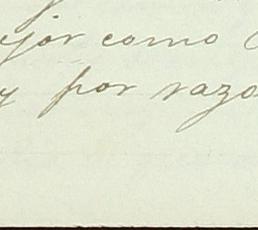 ejor como
y por razo